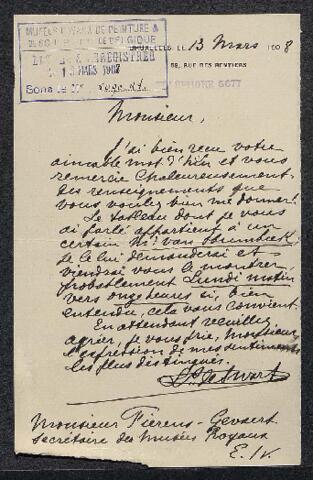 MUSÉES ROYAUX DE PEINTURE &
DE SCULPTURE DE BELGIQUE
ENREGISTRÉE
13 MARS 1908
Sous le N°
BRUXELLES LE 13 Mars 1908
58, RUE DES RENTIERS
TÉLÉPHONE 6677
Monsieur,
J'ai bien reçu votre
aimable mot d'hier et vous
remercie chaleureusement
des renseignements que
vous voulez bien me donner.
Le tableau dont je vous
ai parlé appartient à un
certain Mr van
je le lui demanderai et
viendrai vous le montrer
probablement Lundi matin
vers onze heures si, bien
entendu, cela vous convient.
En attendant veuillez
agréer, je vous prie, Monsieur
l'expression de mes sentiments
les plus distingués.
Monsieur Fierens-Gevaert
secrétaire des Musées Royaux
E./V.